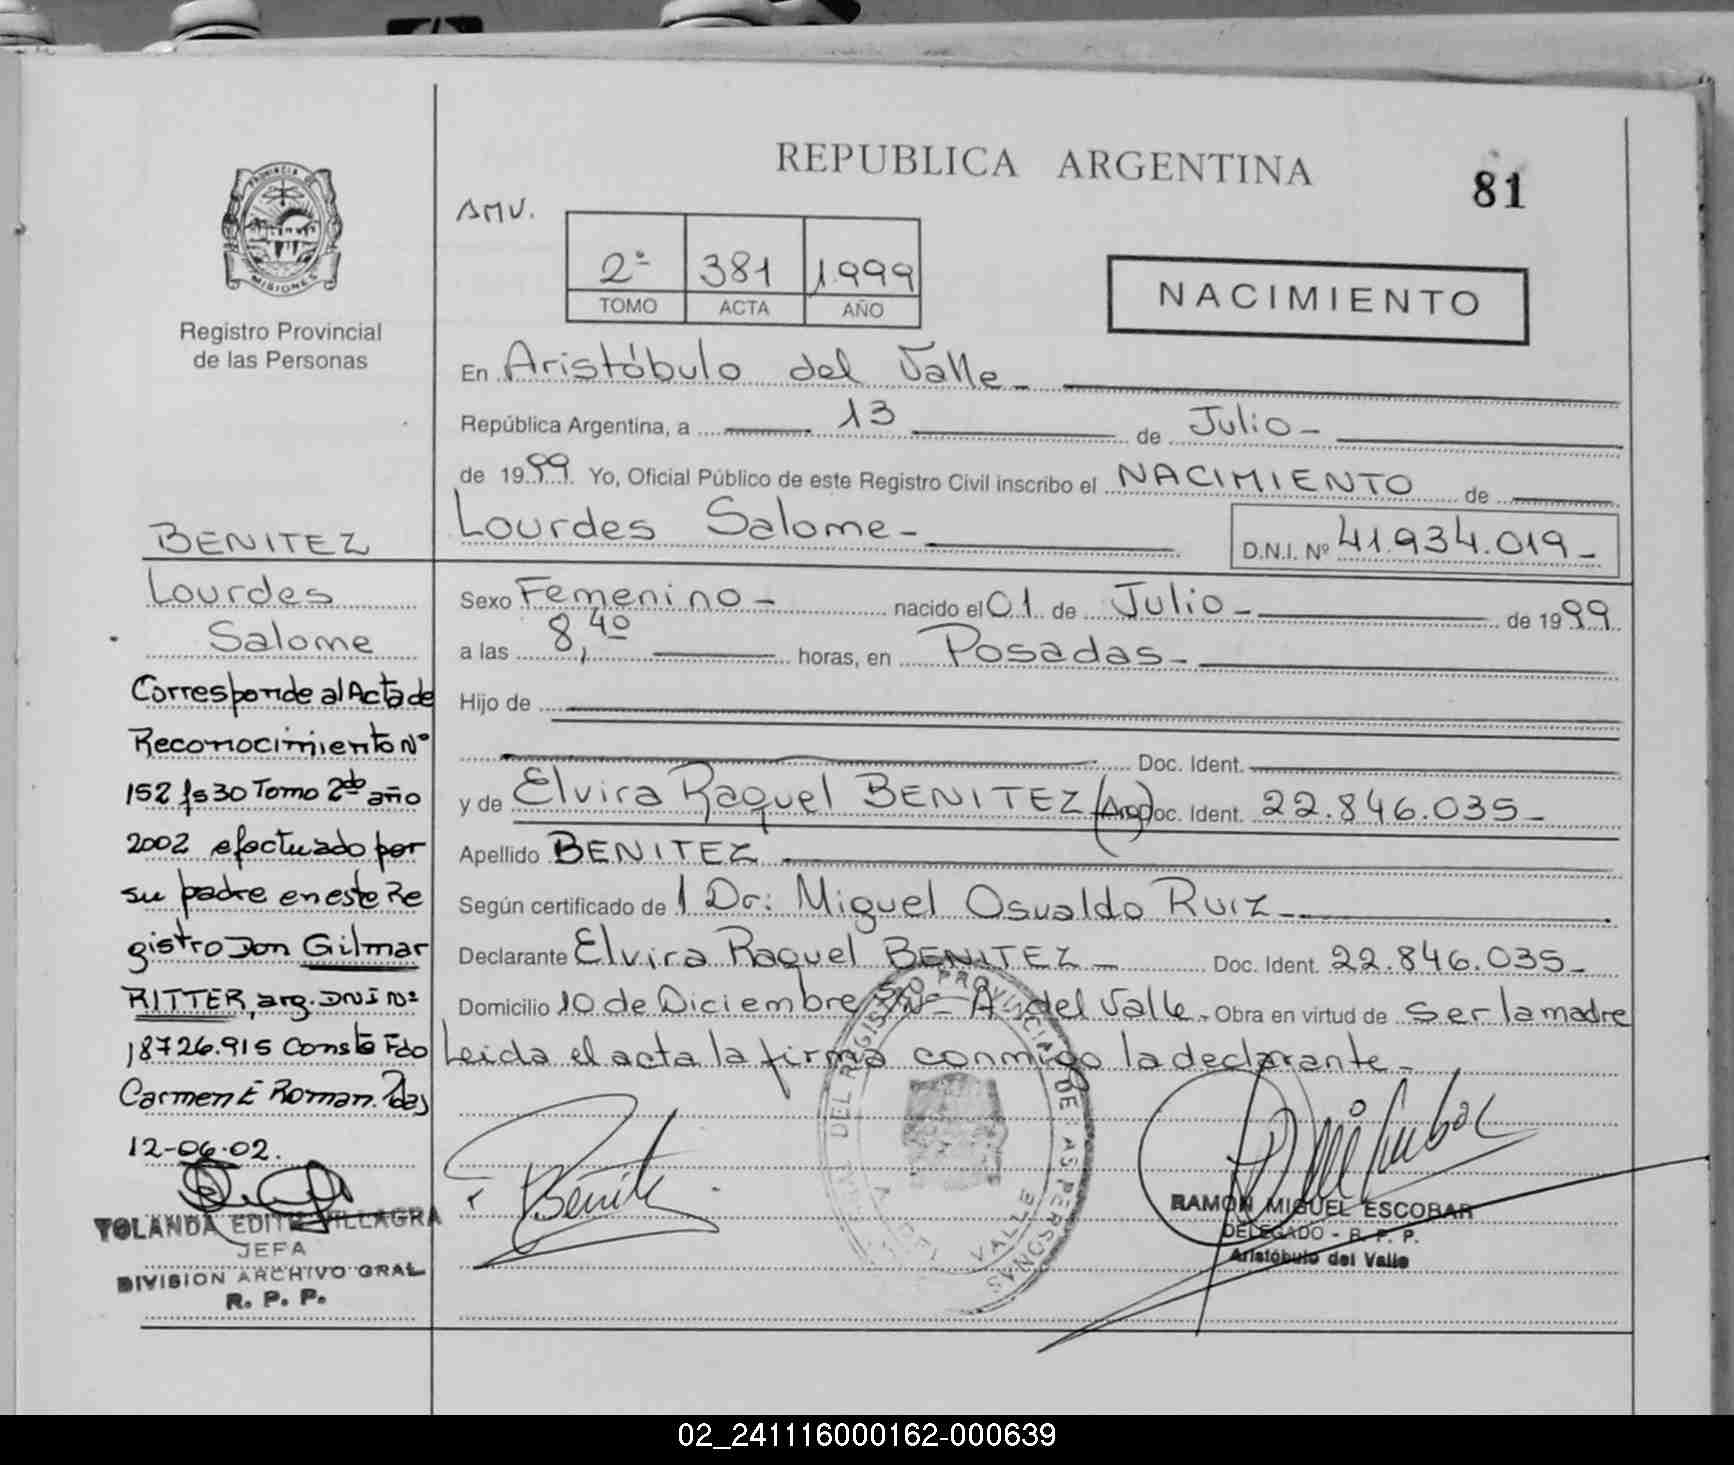 REPUBLICA ARGENTINA
81
AMV.
2º 381 1.999
TOMO ACTA AÑO
NACIMIENTO
PROVINCIA DE
MISIONES
Registro Provincial
de las Personas
En Aristóbulo del Valle
República Argentina, a 13 de Julio
de 1999 Yo, Oficial Público de este Registro Civil inscribo el NACIMIENTO de
Lourdes Salome D.N.I. Nº 41.934.019
Sexo Femenino nacido el 01 de Julio de 1999
a las 8,40 horas, en Posadas
Hijo de
Doc. Ident.
y de Elvira Raquel BENITEZ (Arg) Doc. Ident. 22.846.035
Apellido BENITEZ
Según certificado de 1 Dr: Miguel Osvaldo Ruiz
Declarante Elvira Raquel BENITEZ Doc. Ident. 22.846.035
Domicilio 10 de Diciembre S/Nº A. del Valle Obra en virtud de Ser la madre
Leida el acta la firma conmigo la declarante
BENITEZ
Lourdes
Salome
Corresponde al Acta de
Reconocimiento Nº
152 fs 30 Tomo 2do año
2002 efectuado por
su padre en este Re
gistro Don Gilmar
RITTER, arg. DNI Nº
18726.915 Consta Fdo
Carmen E Roman. Pdas
12-06-02.
YOLANDA EDITH VILLAGRA
JEFA
DIVISION ARCHIVO GRAL
R. P. P.
DEL REGISTRO PROVINCIAL DE LAS PERSONAS
A. DEL VALLE
RAMON MIGUEL ESCOBAR
DELEGADO - R. P. P.
Aristóbulo del Valle
02_241116000162-000639